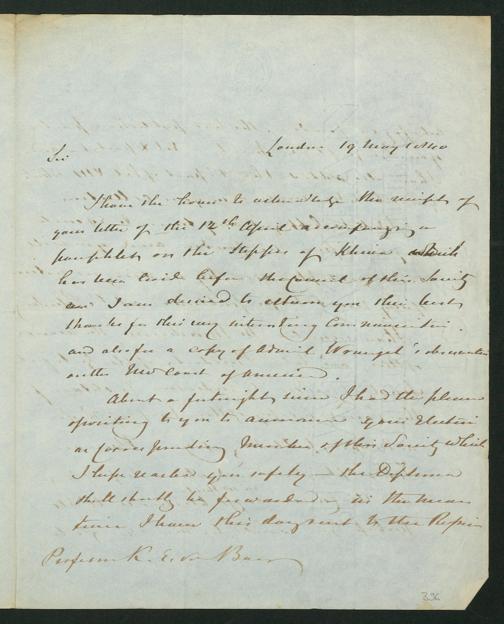 London 19 May 1840
Sir
I have the honor to acknowledge the receipt of
your letter of the 12th April accompanying a
pamphlet on the steppes of Khiva which
has been laid before the Council of this Society
and I am desired to return you their best
thanks for this very interesting Communication.
and also for a copy of Admiral Wrangel's
on the NW Coast of America.
About a fortnight since I had the pleasure
of writing to you to announce your Election
as Corresponding Member of this Society which
I hope reached you safely — the Diploma
shall shortly be forwarded — in the mean
time I have this day sent to the Russian
Professor K. E. von Baer
396